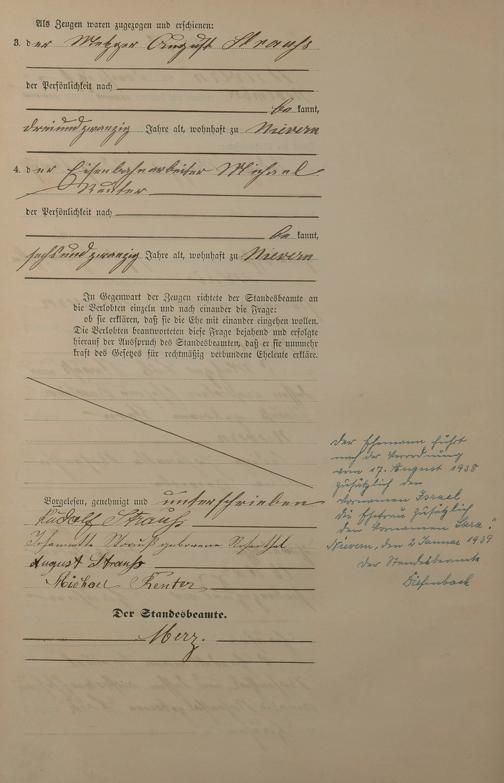 Als Zeugen waren zugezogen und erschienen:
3. der Metzger August Strauß
der Persönlichkeit nach
be kannt,
dreiundzwanzig Jahre alt, wohnhaft zu Nievern
4. der Eisenbahnarbeiter Michael
Reuter
der Persönlichkeit nach
be kannt,
sechsundzwanzig Jahre alt, wohnhaft zu Nievern
In Gegenwart der Zeugen richtete der Standesbeamte an
die Verlobten einzeln und nach einander die Frage:
ob sie erklären, daß sie die Ehe mit einander eingehen wollen.
Die Verlobten beantworteten diese Frage bejahend und erfolgte
hierauf der Ausspruch des Standesbeamten, daß er sie nunmehr
kraft des Gesetzes für rechtmäßig verbundene Eheleute erkläre.
Vorgelesen, genehmigt und unterschrieben
Rudolf Strauß
Strauß geborene Rosenthal
August Strauß
Michael Reuter
Der Standesbeamte.
Merz.
Der Ehemann führt
nach der Verordnung
vom 17. August 1938
zusätzlich den
Vornamen Israel
die Ehefrau zusätzlich
den Vornamen "Sara".
Nievern, den 2 Januar 1939
Der Standesbeamte